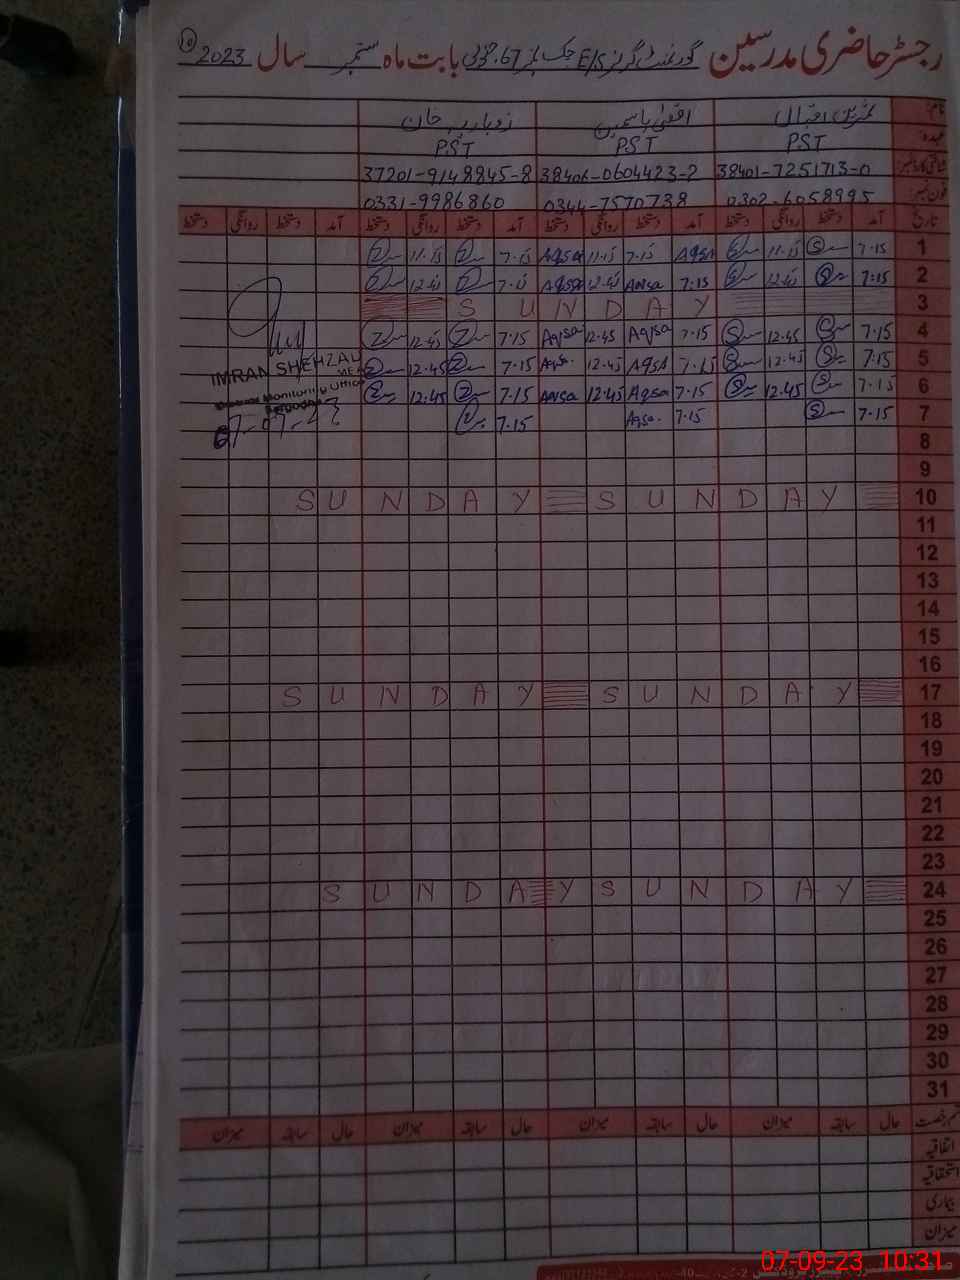 رجسٹر حاضری مدرسین گورنمنٹ گرلز E/S چک نمبر 67 جنوبی بابت ماه ستمبر سال 2023 10
نام: ثمرین اقبال اقصٰی یاسمین زوباریہ خان
عہدہ: PST PST PST
شناختی کارڈ نمبر: 38401-7251713-0 38406-0604423-2 37201-9148845-8
فون نمبر: 0302-6058995 0344-7570738 0331-9986860
تاریخ آمد دستخط روانگی دستخط آمد دستخط روانگی دستخط آمد دستخط روانگی دستخط آمد دستخط روانگی دستخط
1 11.15 Aqsa 7.15 11.15 Aqsa 7.15 11.15
2 7.15 12.45 7.15 Aqsa 12.45 Aqsa 7.15 12.45
3 SUNDAY
4 7.15 12.45 7.15 Aqsa 12.45 Aqsa 7.15 12.45
5 7.15 12.45 7.15 Aqsa 12.45 Aqsa 7.15 12.45
6 7.15 12.45 7.15 Aqsa 12.45 Aqsa 7.15 12.45
7 7.15 7.15 Aqsa 7.15
IMRAN SHEHZAD
MEA
Monitoring Officer
Sargodha
07-09-23
8
9
10 SUNDAY SUNDAY
11
12
13
14
15
16
17 SUNDAY SUNDAY
18
19
20
21
22
23
24 SUNDAY SUNDAY
25
26
27
28
29
30
31
قسم رخصت حال سابقہ میزان حال سابقہ میزان حال سابقہ میزان حال سابقہ میزان
اتفاقیہ
استحقاقیہ
بیماری
میزان
07-09-23 10:31